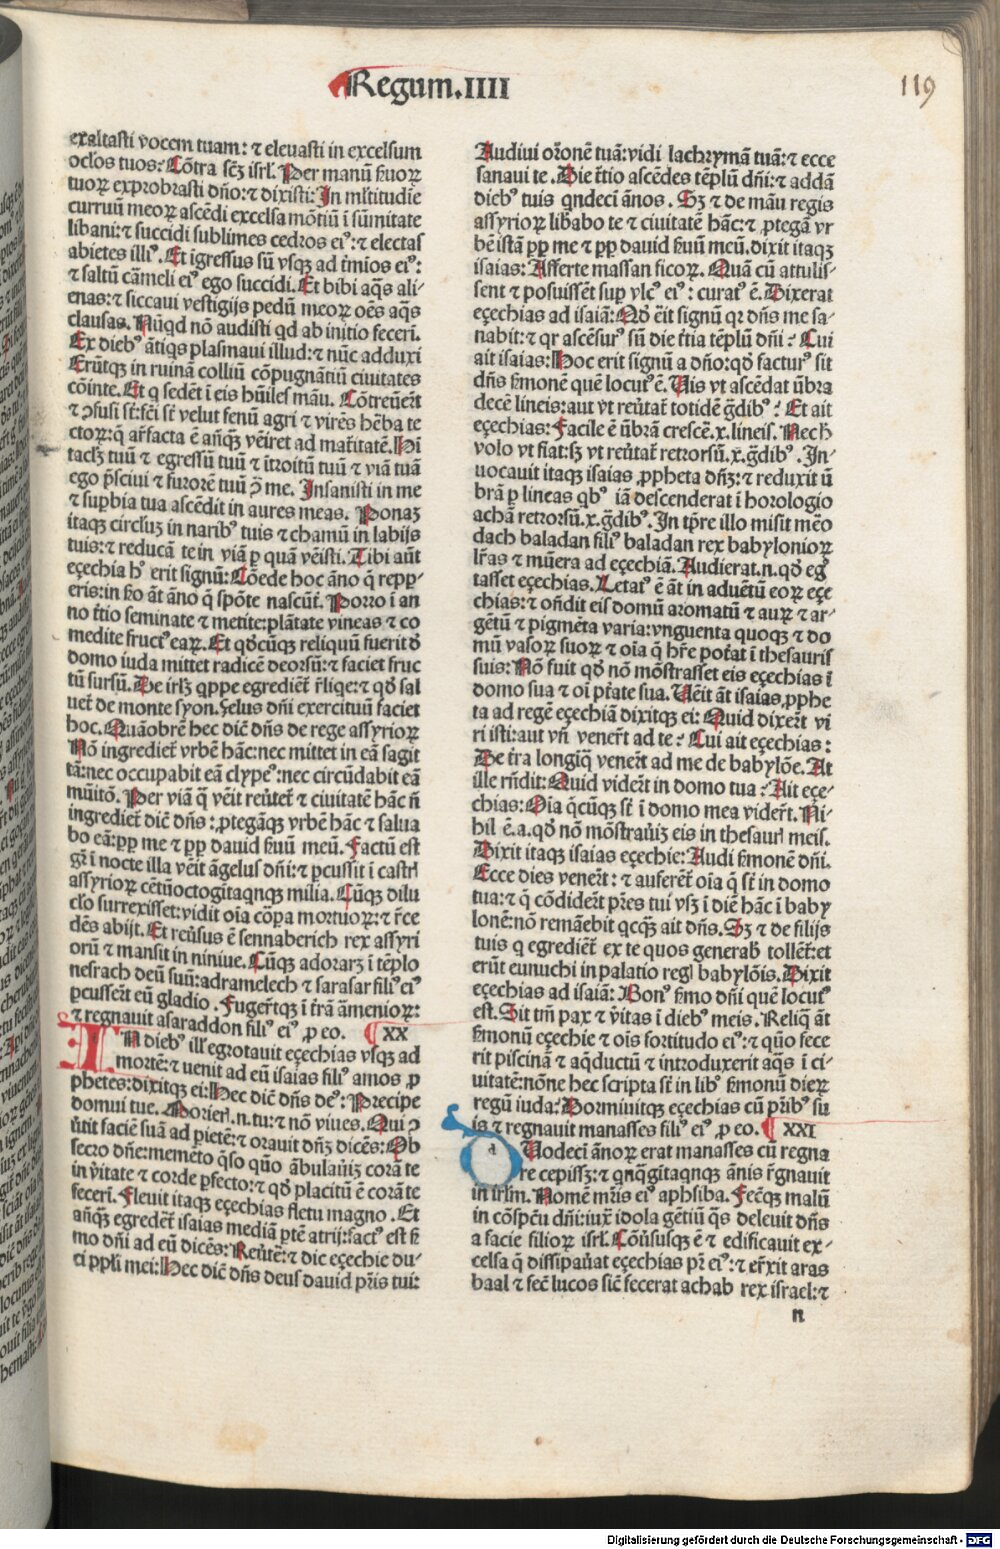 Regum.IIII
119
exaltasti vocem tuam: ⁊ eleuasti in excelsum
ocľos tuos: Cõtra sc̃ʒ isrl̃. Per manũ s̃uoꝝ
tuoꝝ exprobrasti dño: ⁊ dixisti: In ml̃titudĩe
curruũ meoꝝ ascẽdi excelsa mõtiũ ĩ sũmitate
libani: ⁊ succidi sublimes cedros eiꝰ: ⁊ electas
abietes illiꝰ. Et ĩgressus sũ vsqꝫ ad t̃mios eiꝰ:
⁊ saltũ cãmeli eiꝰ ego succidi. Et bibi aq̃s ali-
enas: ⁊ siccaui vestigijs pedũ meoꝝ oẽs aq̃s
clausas. Nũqd nõ audisti qd ab initio fecerĩ.
Ex diebꝰ ãtiqs plasmaui illud: ⁊ nũc adduxi
Erũtqꝫ in ruinã colliũ cõpugnãtiũ ciuitates
cõinte. Et q sedẽt ĩ eis hũiles mãu. Cõtreũer̃t
⁊ ꝯfusi st̃: fc̃i st̃ velut fenũ agri ⁊ virẽs hẽba te
ctoꝝ: q̃ ar̃facta ẽ añq̃ꝫ vẽiret ad mat̃itatẽ. Hĩ
taclʒ tuũ ⁊ egressũ tuũ ⁊ ĩtroitũ tuũ ⁊ viã tuã
ego p̃sciui ⁊ furorẽ tuũ ꝯ̃ me. Insanisti in me
⁊ suꝑbia tua ascẽdit in aures meas. Ponaʒ
itaqꝫ circľuʒ in naribꝰ tuis ⁊ chamũ in labijs
tuis: ⁊ reducã te in viã ꝑ quã vẽisti. Tibi aũt
eçechia hꝰ erit signũ: Cõede hoc ãno q̃ reꝑꝑ-
eris: in s̃o ãt ãno q̃ spõte nascũt̃. Porro ĩ an
no t̃tio seminate ⁊ metite: plãtate vineas ⁊ co
medite fructꝰ eaꝝ. Et qd̃cũqꝫ reliquũ fuerit d̃
domo iuda mittet radicẽ deorsũ: ⁊ faciet fruc
tũ sursũ. De irlʒ qppe egrediẽt̃ r̃liqe: ⁊ qd̃ sal
uet̃ de monte syon. Çelus dñi exercituũ faciet
hoc. Quãobrẽ hec dic̃ dñs de rege assyrioꝝ
Nõ ingrediet̃ vrbẽ hãc: nec mittet in eã sagit
tã: nec occupabit eã clypeꝰ: nec circũdabit eã
mũitõ. Per viã q̃ vẽit reũtet̃ ⁊ ciuitatẽ hãc ñ
ingrediet̃ dic̃ dñs: ꝓtegãqꝫ vrbẽ hãc ⁊ salua
bo eã: ꝓꝑ me ⁊ ꝓꝑ dauid s̃uũ meũ. Factũ est
gr̃ ĩ nocte illa vẽit ãgelus dñi: ⁊ ꝑcussit ĩ castrl̃
assyrioꝝ cẽtũoctogĩtaqnqꝫ milia. Cũqꝫ dilu
cľo surrexisset: vidit oĩa cõꝑa mortuoꝝ: ⁊ r̃ce
dẽs abijt. Et reũsus ẽ sennaberich rex assyri
orũ ⁊ mansit in niniue. Cũqꝫ adoraꝛʒ ĩ tẽplo
nesrach deũ suũ: adramelech ⁊ sarasar filiꝰ eiꝰ
ꝑcusser̃t eũ gladio. Fuger̃tqꝫ ĩ t̃rã ãmenioꝝ:
⁊ regnauit asaraddon filiꝰ eiꝰ ꝓ eo. XX
IN diebꝰ ill̃ egrotauit eçechias vsqꝫ ad
mortẽ: ⁊ uenit ad eũ isaias filiꝰ amos ꝓ
phetes: dixitqꝫ ei: Hec dic̃ dñs deꝰ: Precipe
domui tue. Morier̃.n.tu: ⁊ nõ viues. Qui ꝯ
ũtit faciẽ suã ad pietẽ: ⁊ orauit dñʒ dicẽs: Ob
secro dñe: memẽto q̃so quõ ãbulaũiʒ corã te
in ṽitate ⁊ corde ꝑfecto: ⁊ qd̃ placitũ ẽ corã te
fecerĩ. Fleuit itaqꝫ eçechias fletu magno. Et
añq̃ꝫ egredet̃ isaias mediã ꝑtẽ atrij: factꝰ est s̃
mo dñi ad eũ dicẽs: Reũtẽ: ⁊ dic eçechie du-
ci ppľi mei: Hec dic̃ dñs deus dauid pr̃is tui:
Audiui or̃onẽ tuã: vidi lachrymã tuã: ⁊ ecce
sanaui te. Die t̃tio ascẽdes tẽplũ dñi: ⁊ addã
diebꝰ tuis qndeci ãnos. Sʒ ⁊ de mãu regis
assyrioꝝ lib̃abo te ⁊ ciuitatẽ hãc: ⁊ ꝓtegã vr
bẽ istã ꝓꝑ me ⁊ ꝓꝑ dauid s̃uũ meũ. dixit itaqꝫ
isaias: Afferte massan ficoꝝ. Quã cũ attulis-
sent ⁊ posuissẽt suꝑ vlcꝰ eiꝰ: curatꝰ ẽ. Dixerat
eçechias ad isaiã: Qd̃ ẽit signũ qꝛ dñs me sa-
nabit: ⁊ qꝛ ascẽsurꝰ sũ die t̃tia tẽplũ dñi? Cui
ait isaias: Hoc erit signũ a dño: qd̃ facturꝰ sit
dñs s̃monẽ quẽ locutꝰ ẽ. Uis vt ascẽdat ũbra
decẽ lineis: aut vt reũtat̃ totidẽ g̃dibꝰ? Et ait
eçechias: Facile ẽ ũbrã crescẽ.x.lineis. Nec h̃
volo vt fiat: sʒ vt reũtat̃ retrorsũ.x.g̃dibꝰ. In-
uocauit itaqꝫ isaias ꝓpheta dñʒ: ⁊ reduxit ũ
brã ꝑ lineas qbꝰ iã descenderat ĩ horologio
achaʒ retrorsũ.x.g̃dibꝰ. In tp̃re illo misit mẽo
dach baladan filiꝰ baladan rex babylonioꝝ
lr̃as ⁊ mũera ad eçechiã. Audierat.n.qd̃ eg̃
tasset eçechias. Letatꝰ ẽ ãt in aduẽtũ eoꝝ eçe
chias: ⁊ oñdit eis domũ aromatũ ⁊ auꝝ ⁊ ar-
gẽtũ ⁊ pigmẽta varia: vnguenta quoqꝫ ⁊ do
mũ vasoꝝ suoꝝ ⁊ oĩa q̃ hr̃e pot̃at ĩ thesauris
suis: Nõ fuit qd̃ nõ mõstrasset eis eçechias ĩ
domo sua ⁊ oĩ pt̃ate sua. Uẽit ãt isaias ꝓphe
ta ad regẽ eçechiã dixitqꝫ ei: Quid dixer̃t vi
ri isti: aut vñ vener̃t ad te? Cui ait eçechias:
De t̃ra longiq̃ vener̃t ad me de babylõe. At
ille rñdit: Quid vider̃t in domo tua? Ait eçe-
chias: Oĩa q̃cũqꝫ st̃ ĩ domo mea vider̃t. Ni-
hil ẽ.a.qd̃ nõ mõstraũiʒ eis in thesaurl̃ meis.
Dixit itaqꝫ isaias eçechie: Audi s̃monẽ dñi.
Ecce dies vener̃t: ⁊ auferẽt̃ oĩa q̃ st̃ in domo
tua: ⁊ q̃ cõdider̃t pr̃es tui vsʒ ĩ diẽ hãc ĩ baby
lonẽ: nõ remãebit qcq̃ꝫ ait dñs. Sʒ ⁊ de filijs
tuis q egrediẽt̃ ex te quos generab̃ tollẽt̃: et
erũt eunuchi in palatio regl̃ babylõis. Dixit
eçechias ad isaiã: Bonꝰ s̃mo dñi quẽ locutꝰ
est. Sit tm̃ pax ⁊ ṽitas ĩ diebꝰ meis. Reliq̃ ãt
s̃monũ eçechie ⁊ oĩs fortitudo eiꝰ: ⁊ quõ fece
rit piscinã ⁊ aq̃ductũ ⁊ introduxerit aq̃s ĩ ci-
uitatẽ: nõne hec scripta st̃ in libꝰ s̃monũ dieꝝ
regũ iuda? Dormiuitqꝫ eçechias cũ pr̃ibꝰ su
is ⁊ regnauit manasses filiꝰ eiꝰ ꝓ eo. XXI
DUodeci ãnoꝝ erat manasses cũ regna
re cepissʒ: ⁊ qnq̃gĩtaqnqꝫ ãnis r̃gnauit
in irľm. Nomẽ mr̃is eiꝰ aphsiba. Fec̃qꝫ malũ
in cõspc̃u dñi: iuxᷓ idola gẽtiũ q̃s deleuit dñs
a facie filioꝝ isrl̃. Cõũsusqꝫ ẽ ⁊ edificauit ex-
celsa q̃ dissipaũat eçechias pr̃ eiꝰ: ⁊ er̃xit aras
baal ⁊ fec̃ lucos sic̃ fecerat achab rex israel: ⁊
n
Digitalisierung gefördert durch die Deutsche Forschungsgemeinschaft - DFG